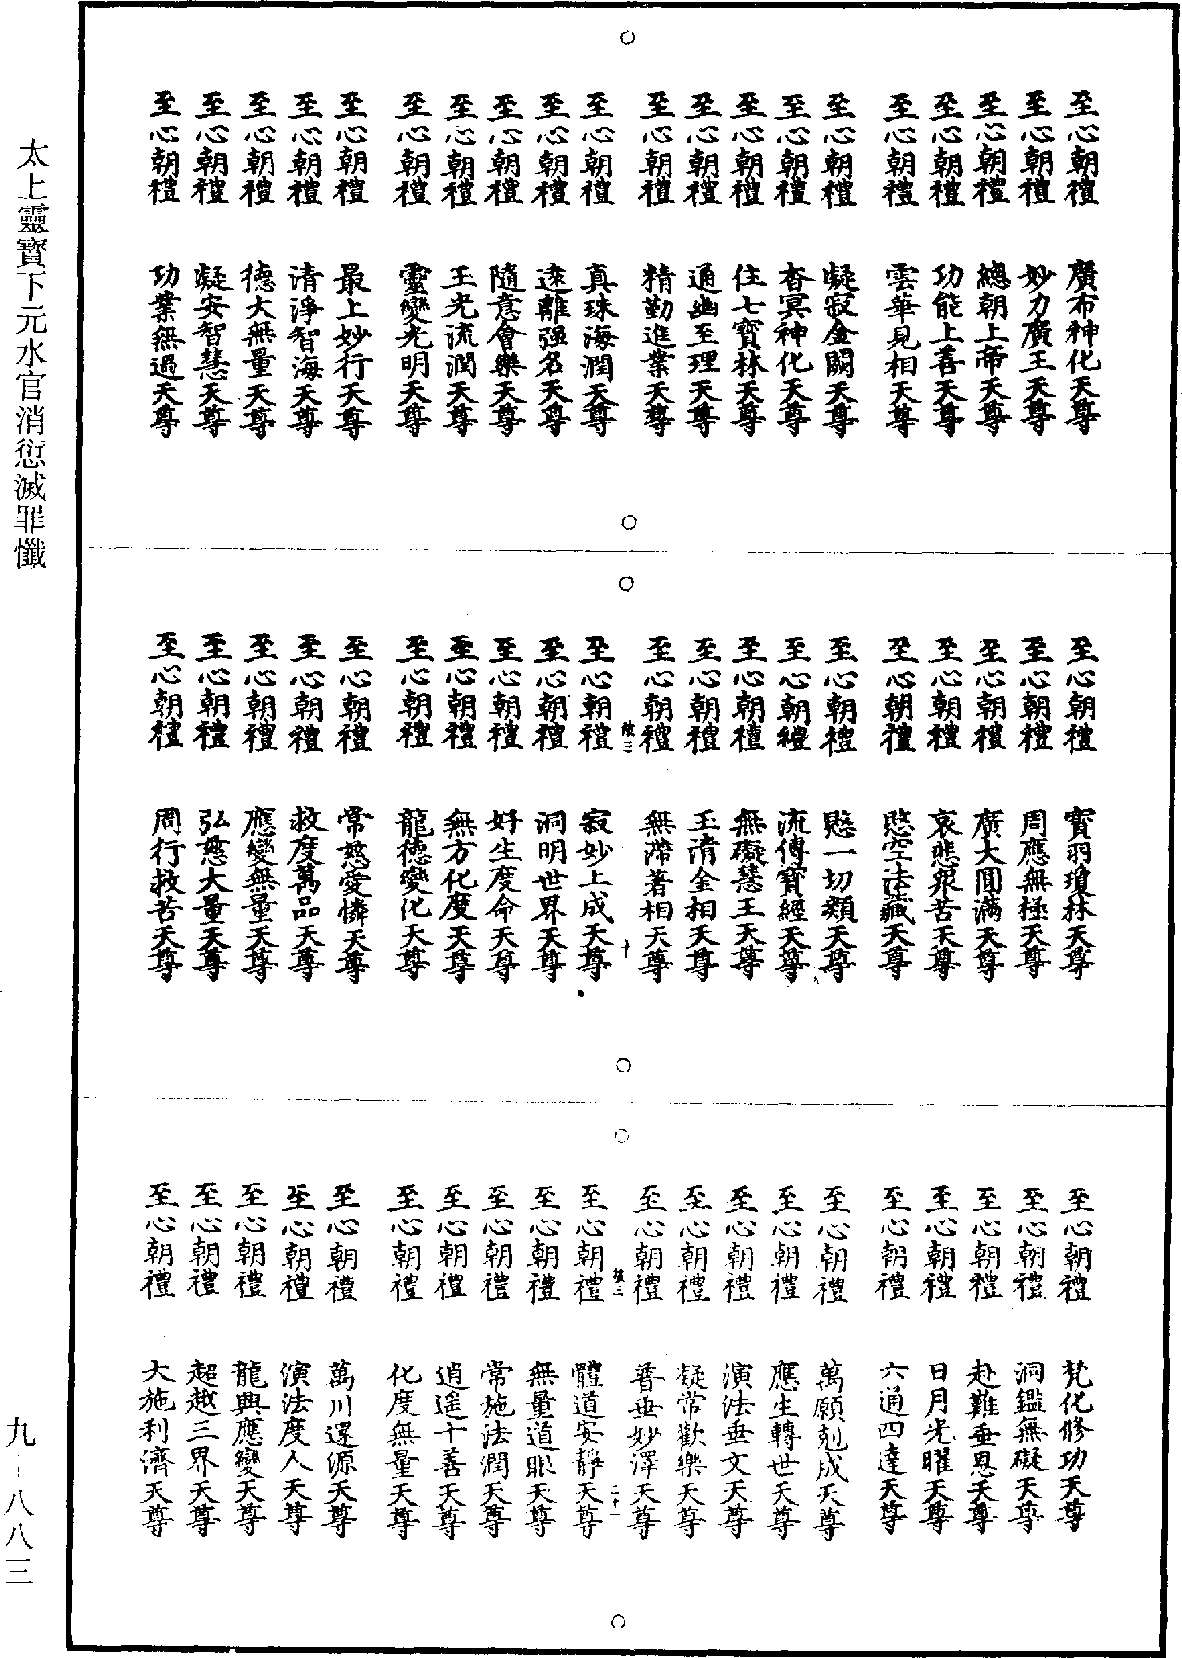 至心朝禮　廣布神化天尊
至心朝禮　妙力廣王天尊
至心朝禮　總朝上帝天尊
至心朝禮　功能上善天尊
至心朝禮　雲華見相天尊
至心朝禮　凝寂金闕天尊
至心朝禮　杳冥神化天尊
至心朝禮　住七寶林天尊
至心朝禮　通幽至理天尊
至心朝禮　精勤進業天尊
至心朝禮　真珠海潤天尊
至心朝禮　遠離強名天尊
至心朝禮　隨意會樂天尊
至心朝禮　玉光流潤天尊
至心朝禮　靈變光明天尊
至心朝禮　最上妙行天尊
至心朝禮　清淨智海天尊
至心朝禮　德大無量天尊
至心朝禮　凝安智慧天尊
至心朝禮　功業無過天尊
至心朝禮　寶羽瓊林天尊
至心朝禮　周應無極天尊
至心朝禮　廣大圓滿天尊
至心朝禮　哀悲衆苦天尊
至心朝禮　愍字法藏天尊
至心朝禮　愍一切類天尊
至心朝禮　流傳寶經天尊
至心朝禮　無礙慧王天尊
至心朝禮　玉清金相天尊
至心朝禮　無滯著相天尊
陵三　十
至心朝禮　寂妙上成天尊
至心朝禮　洞明世界天尊
至心朝禮　好生度命天尊
至心朝禮　無方化度天尊
至心朝禮　龍德變化天尊
至心朝禮　常慈愛憐天尊
至心朝禮　救度萬品天尊
至心朝禮　應變無量天尊
至心朝禮　弘慈大量天尊
至心朝禮　周行救苦天尊
至心朝禮　梵化修功天尊
至心朝禮　洞鑑無礙天尊
至心朝禮　赴難垂恩天尊
至心朝禮　日月光曜天尊
至心朝禮　六通四達天尊
至心朝禮　萬願剋成天尊
至心朝禮　應生轉世天尊
至心朝禮　演法垂文天尊
至心朝禮　凝常歡樂天尊
至心朝禮　普垂妙澤天尊
陵三　二十一
至心朝禮　體道安靜天尊
至心朝禮　無量道眼天尊
至心朝禮　常施法潤天尊
至心朝禮　逍遙十善天尊
至心朝禮　化度無量天尊
至心朝禮　萬川還源天尊
至心朝禮　演法度人天尊
至心朝禮　龍興應變天尊
至心朝禮　超越三界天尊
至心朝禮　大施利濟天尊
太上靈寶下元水官消愆滅罪懺
九－八八三